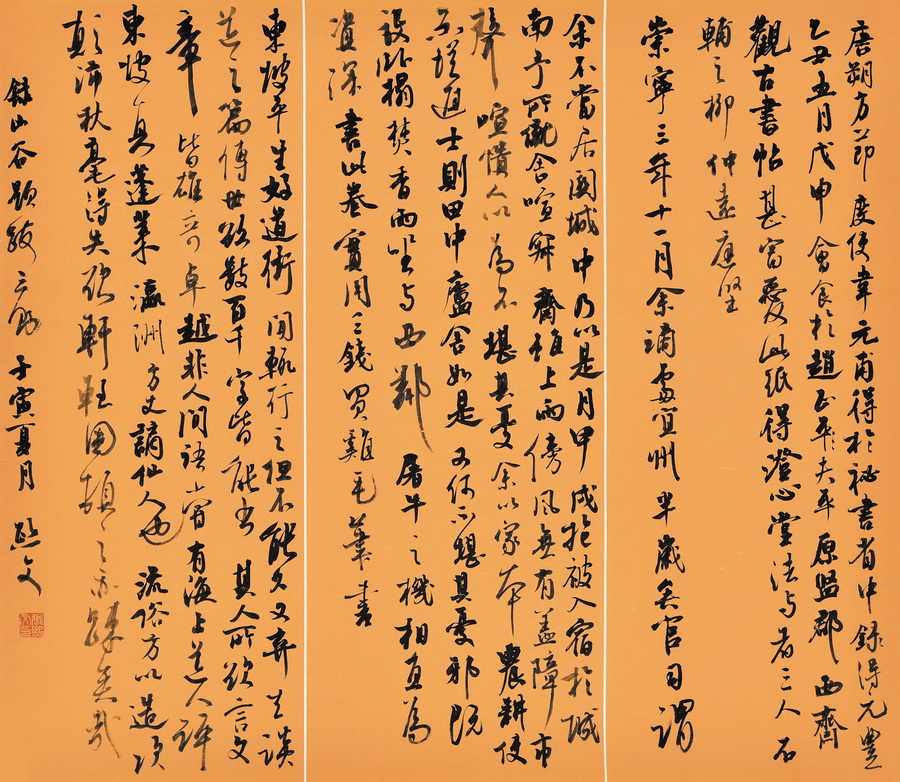 唐朔方節度使韋元甫得於祕書省中録得元豊
乙丑五月戊申會食於趙正夫平原監郡西齋
觀古書帖甚富愛此紙得澄心堂法与者三人石
輔之柳仲遠庭堅
崇寧三年十一月余謫處宜州半歲矣官司謂
余不當居関城中乃以是月甲戌抱被入宿於城
南予所僦舍喧寂齋雖上雨傍風無有蓋障市
聲喧憒人以為不堪其憂余以家本農耕使
不從進士則田中廬舍如是又何不堪其憂邪既
設卧榻焚香而坐与西鄰屠牛之機相直為
資深書此卷實用三錢買雞毛筆書
東坡平生好道術聞輒行之但不能久又棄去談
道之篇傳世欲數百千字皆能書其人所欲言文
章皆雄奇卓越非人間語嘗有海上道人評
東坡真蓬萊瀛洲方丈謫仙人也流俗方以造次
顛沛秋毫得失欲軒輊困頓之亦疎矣哉
録山谷題跋三則 壬寅夏月 熙文